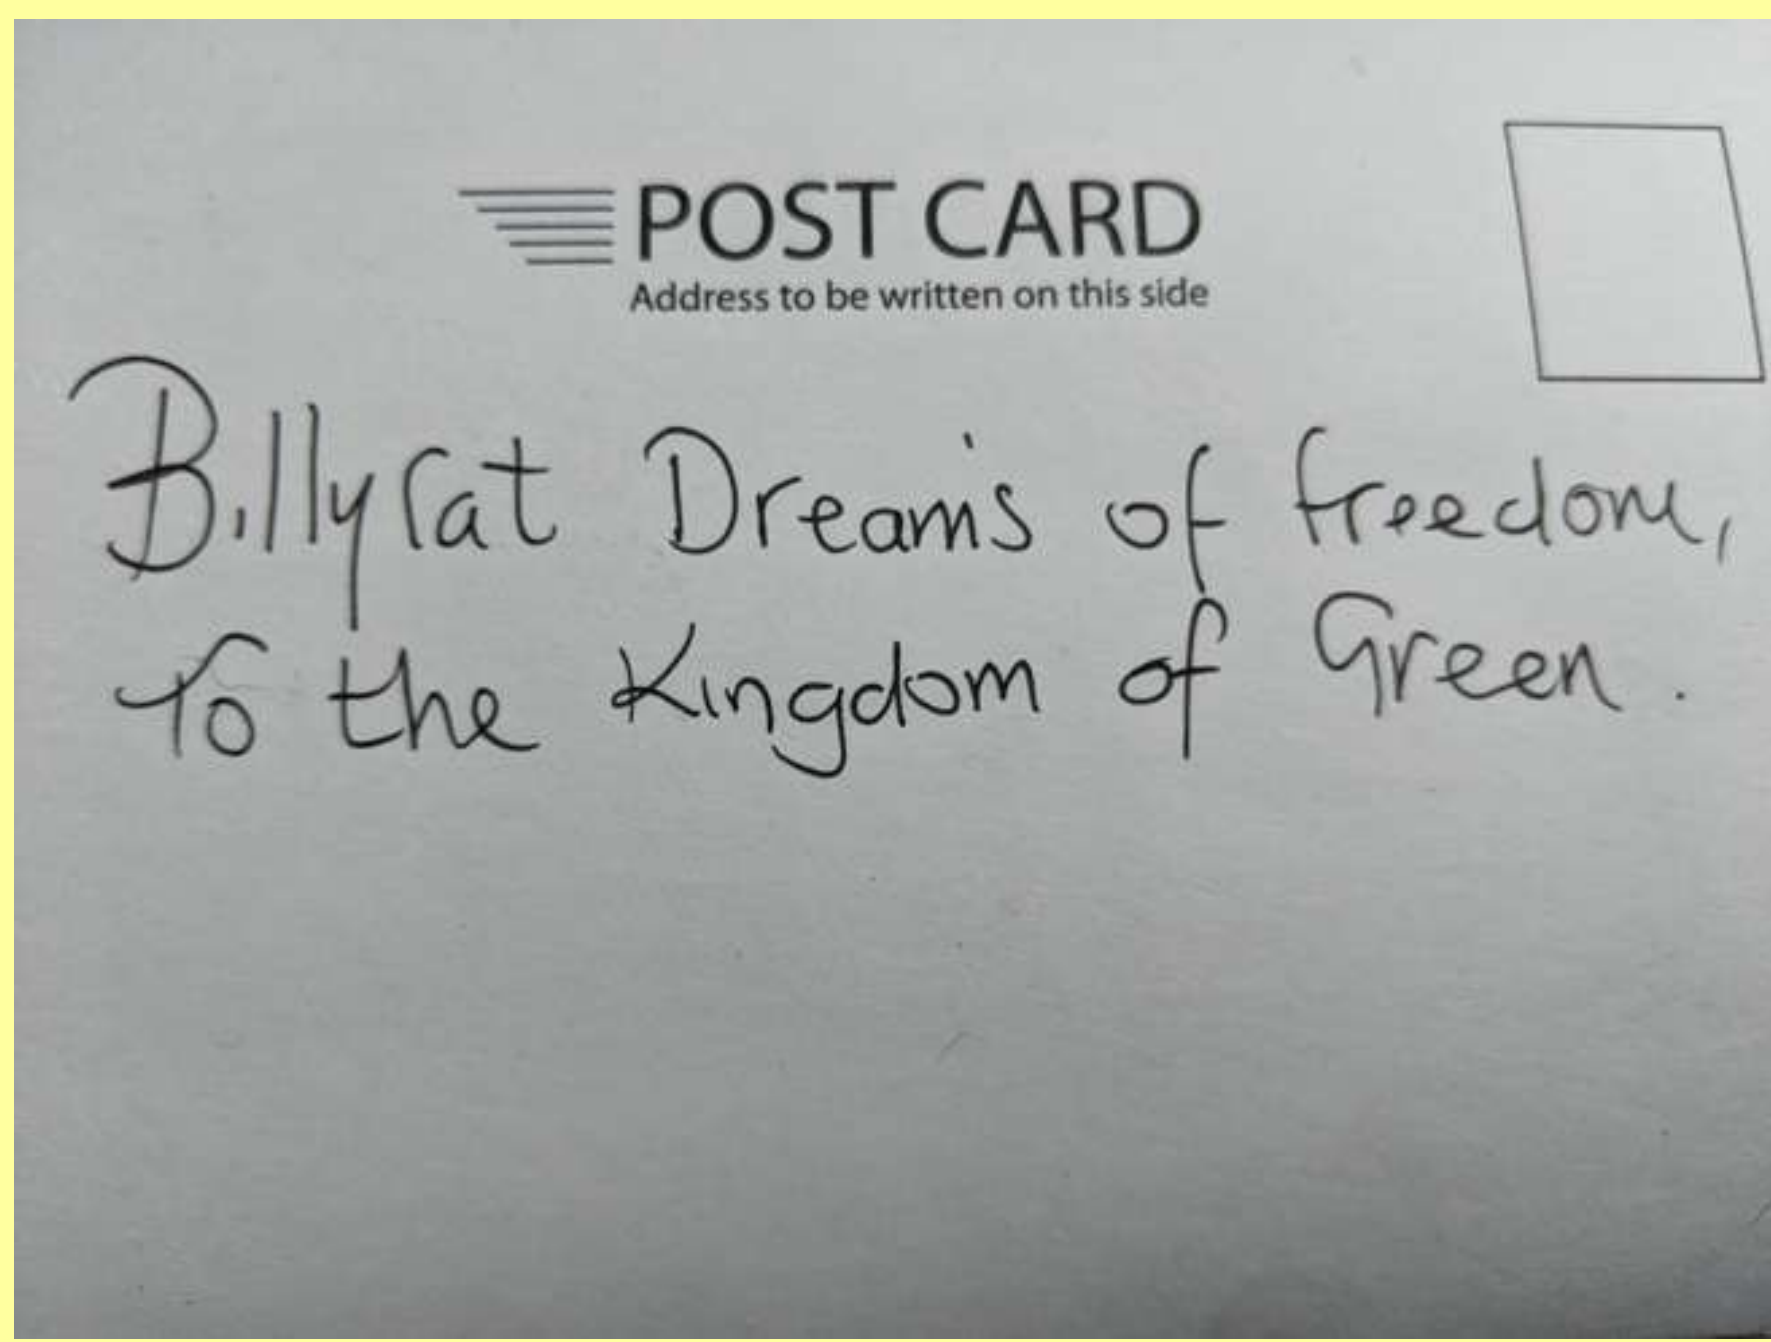 POST CARD
Address to be written on this side
Billyrat Dreams of freedom,
To the Kingdom of Green.